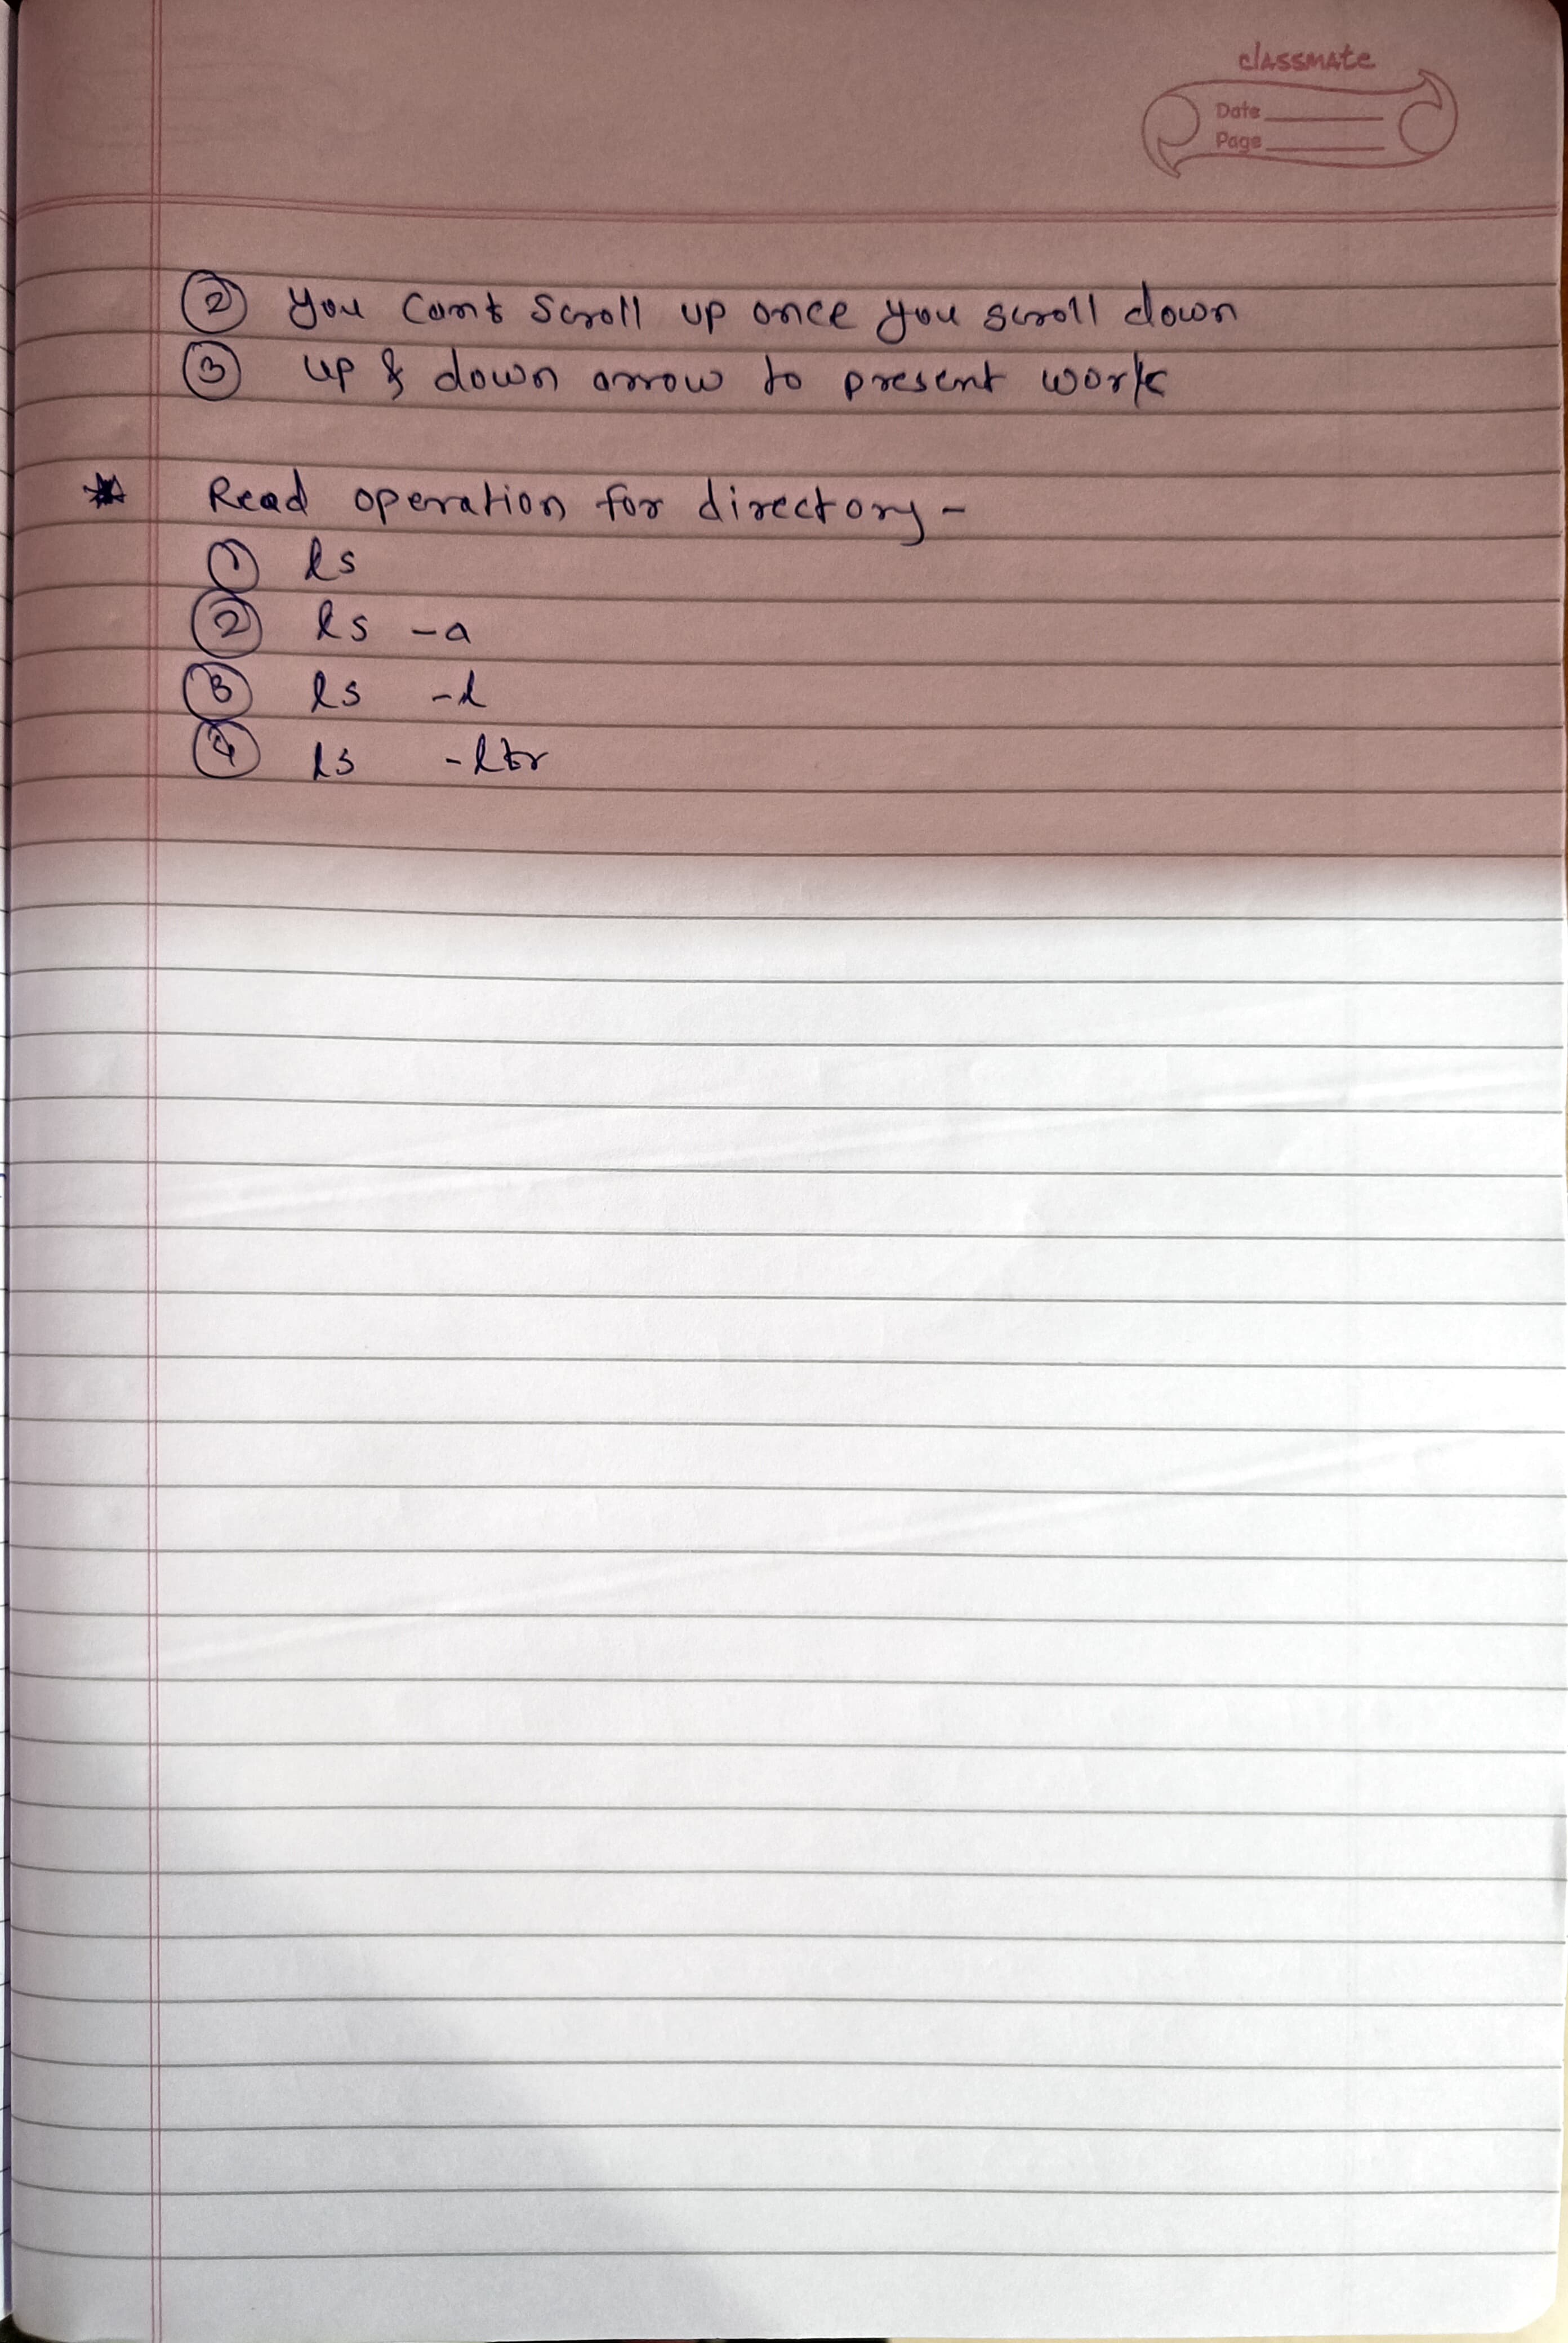 classmate
Date
Page
② You cant scroll up once you scroll down
③ up & down arrow to present work
* Read operation for directory -
① ls
② ls -a
③ ls -l
④ ls -ltr